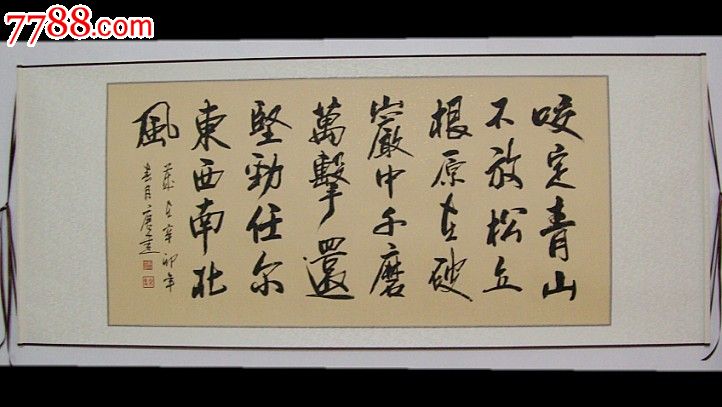 7788.com
咬定青山
不放松立
根原在破
巖中千磨
萬擊還
堅勁任尔
東西南北
風
歲在辛卯年
月